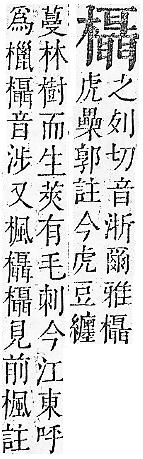 欇之列切音浙爾雅欇
虎櫐郭註今虎豆纏
蔓林樹而生莢有毛刺今江東呼
為㯿欇音涉又楓欇欇見前楓註